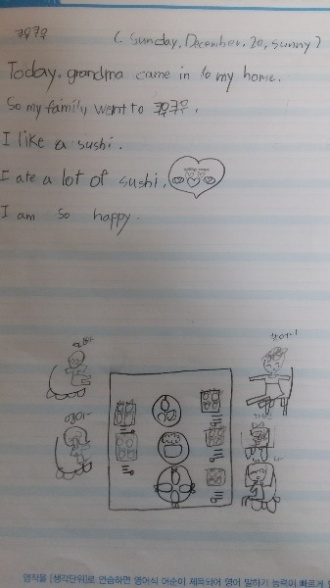 (Sunday, December, 20, sunny)
Today, grandma came in to my home.
So my family went to 쿠우쿠우.
I like a sushi.
I ate a lot of sushi.
I am so happy.
영작을 [생각단위]로 연습하면 영어식 어순이 체트되어 영어 말하기 능력이 빠르게